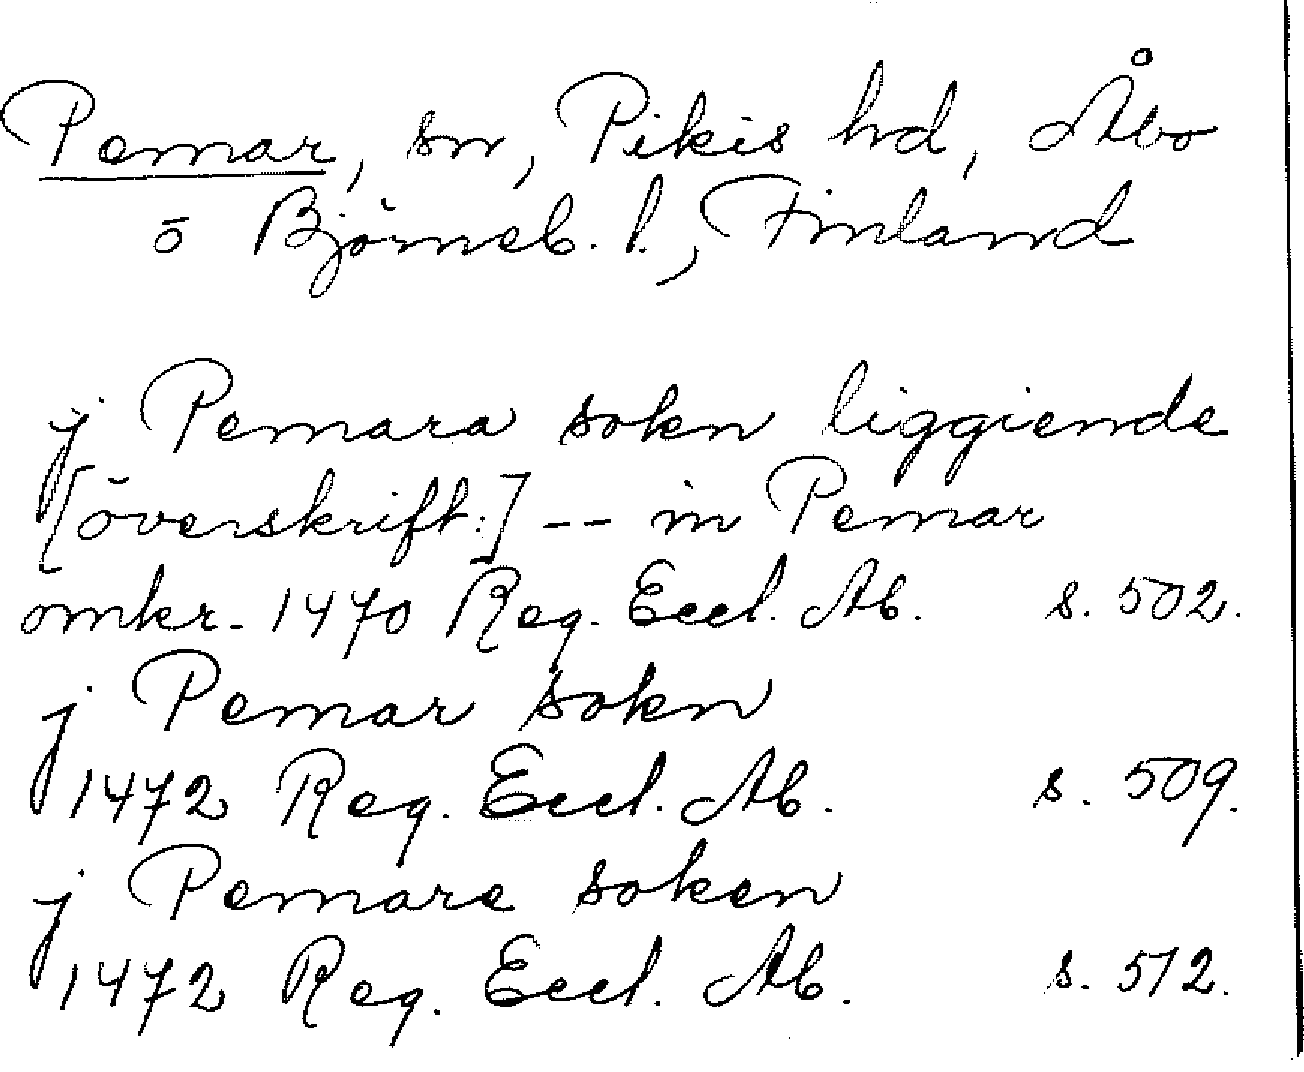 Pemar, sn, Pikis hd, Åbo
o Björneb. l., Finland
j Pemara sokn liggiende
[överskrift:] -- in Pemar
omkr. 1470 Reg. Eccl. Ab. s. 502.
j Pemar sokn
1472 Reg. Eccl. Ab. s. 509.
j Pemare soken
1472 Reg. Eccl. Ab. s. 512.